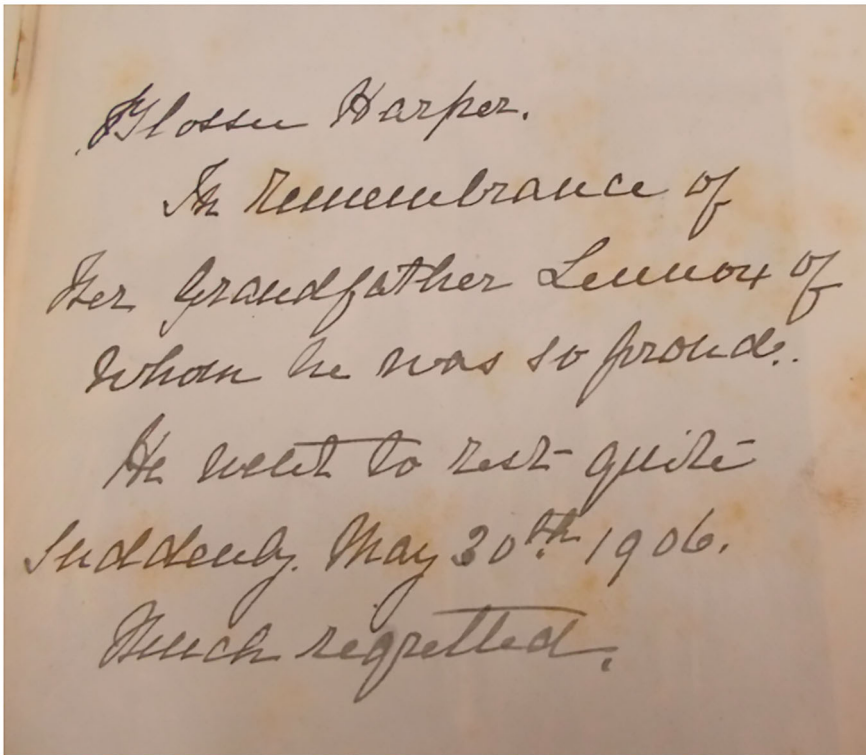 Flossie Harper.
In remembrance of
Her Grandfather Lennox of
Whom he was so proud.
He went to rest quite
Suddenly. May 30th 1906.
Much regretted.